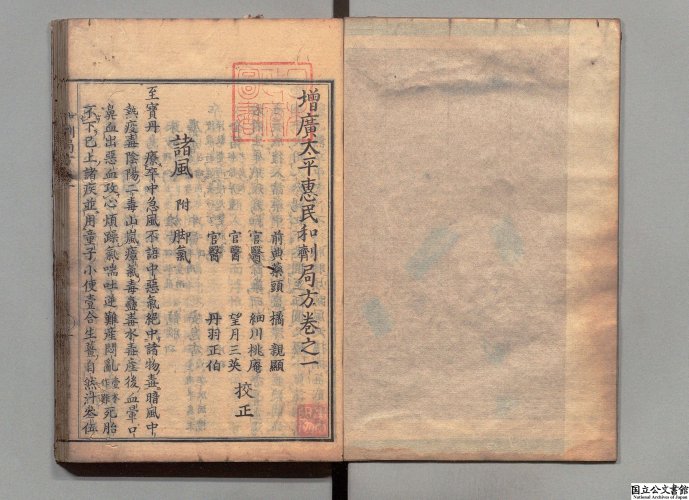 增廣太平惠民和劑局方卷之一
前典藥頭 橘 親顯
官醫 細川桃庵
官醫 望月三英
官醫 丹羽正伯
校正
諸風 附脚氣
至寶丹 療卒中急風不語中惡氣絕中諸物毒暗風中
熱疫毒陰陽二毒山嵐瘴氣毒蠱毒水毒產後血暈口
鼻血出惡血攻心煩躁氣喘吐逆難產悶亂死胎
不下已上諸疾並用童子小便壹合生薑自然汁叁伍
国立公文書館
National Archives of Japan